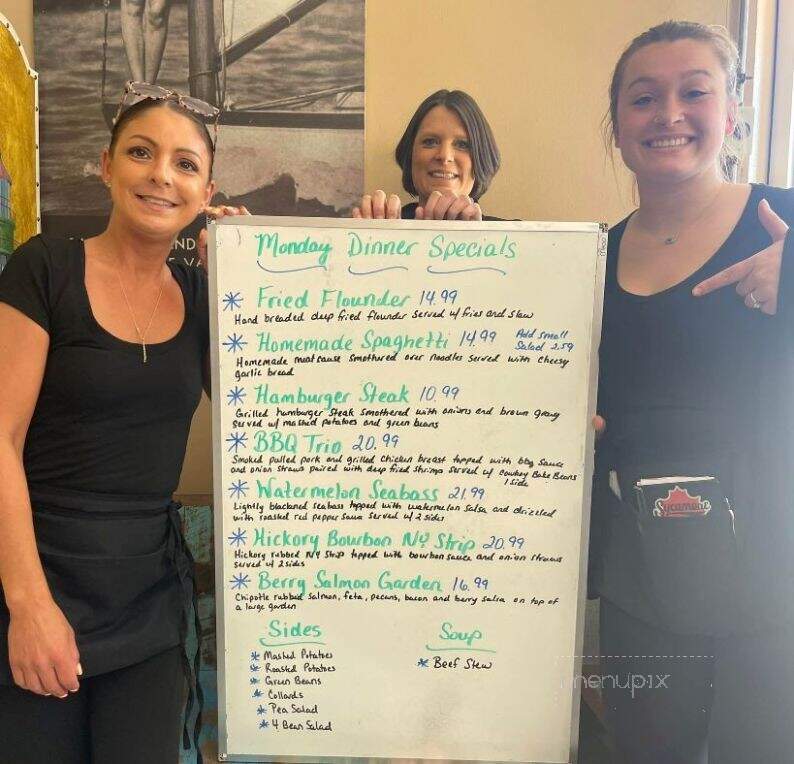 Monday Dinner Specials
* Fried Flounder 14.99
Hand breaded deep fried flounder served w/ fries and slaw
* Homemade Spaghetti 14.99 Add small
Salad 2.59
Homemade meat sauce smothered over noodles served with cheesy
garlic bread
* Hamburger Steak 10.99
Grilled hamburger steak smothered with onions and brown gravy
served w/ mashed potatoes and green beans
* BBQ Trio 20.99
Smoked pulled pork and grilled chicken breast topped with bbq sauce
and onion straws paired with deep fried shrimps served w/ Cowboy Bake Beans
1 side
* Watermelon Seabass 21.99
Lightly blackened seabass topped with watermelon salsa and drizzled
with roasted red pepper sauce served w/ 2 sides
* Hickory Bourbon NY Strip 20.99
Hickory rubbed NY Strip topped with bourbon sauce and onion straws
served w/ 2 sides
* Berry Salmon Garden 16.99
Chipotle rubbed salmon, feta, pecans, bacon and berry salsa on top of
a large garden
Sides
* Mashed Potatoes
* Roasted Potatoes
* Green Beans
* Collards
* Pea Salad
* 4 Bean Salad
Soup
* Beef Stew
Sycamore
menupix